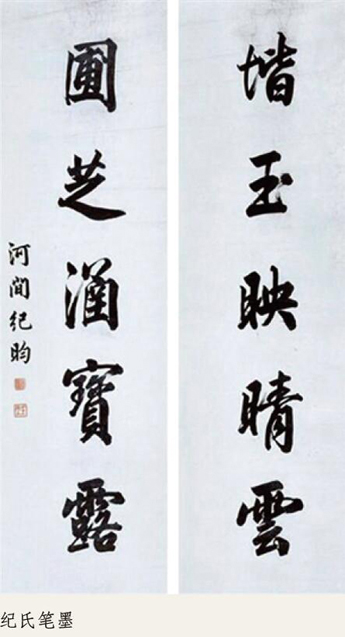 堦玉映晴雲
圃芝涵寶露
河間纪昀
纪氏笔墨